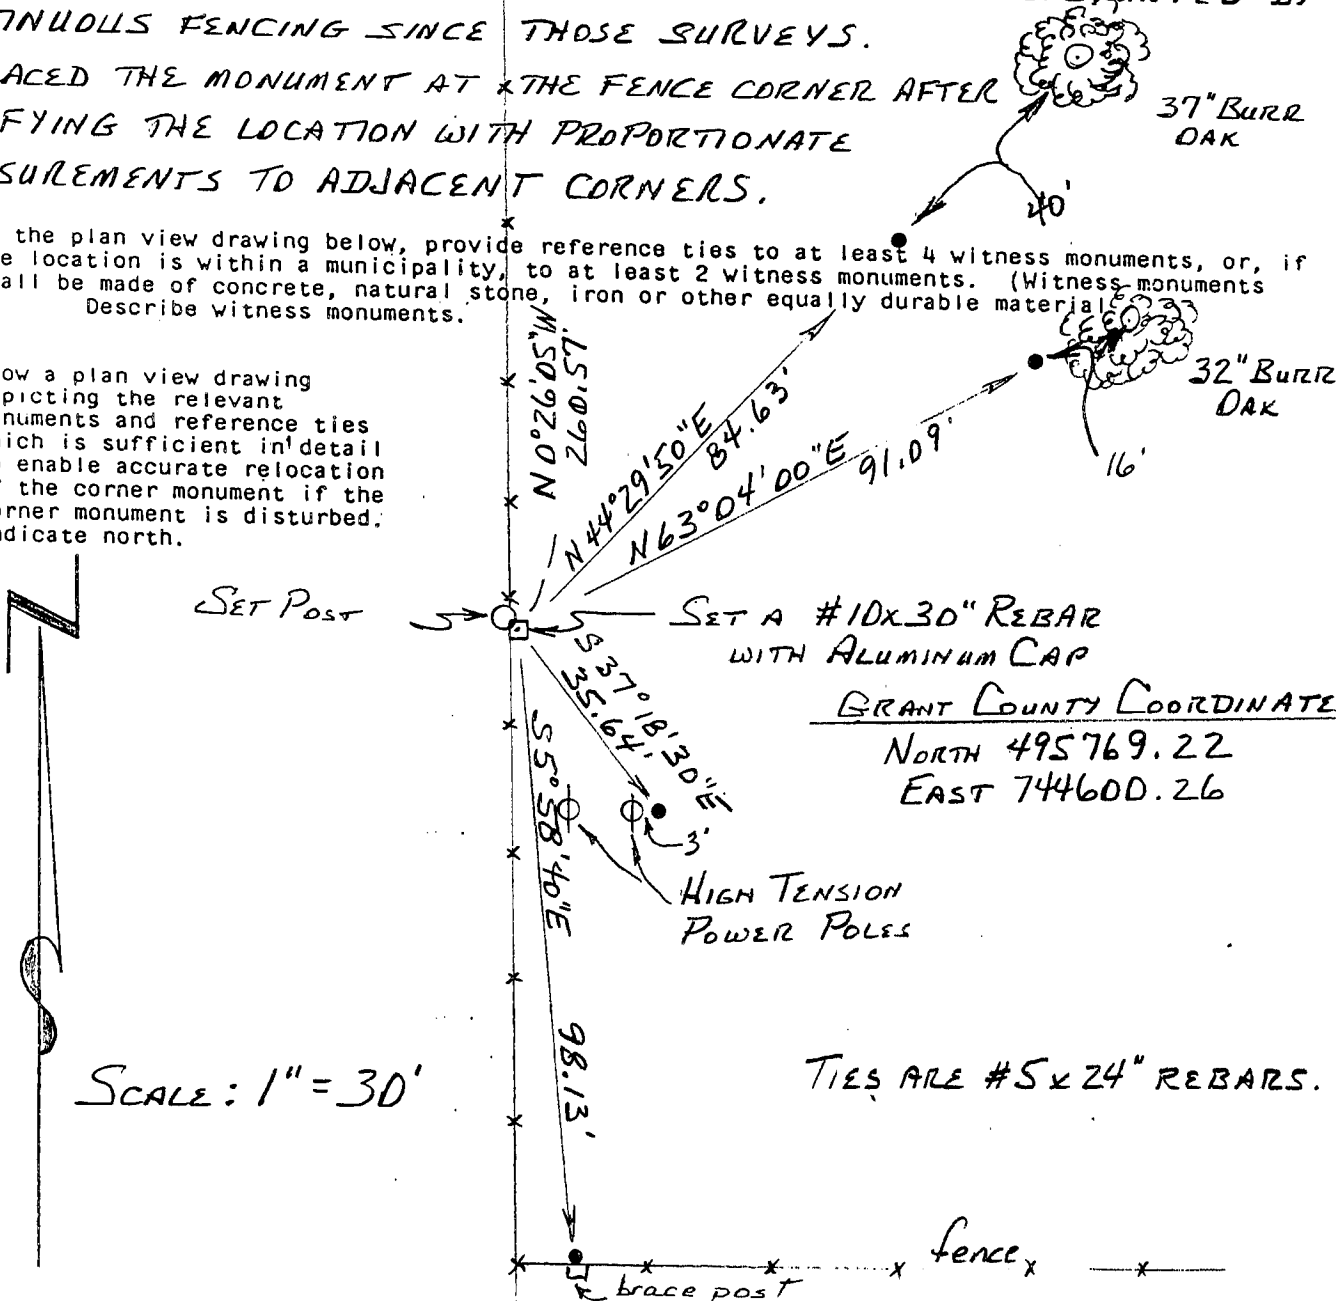 NUOUS FENCING SINCE THOSE SURVEYS.
ACED THE MONUMENT AT THE FENCE CORNER AFTER
FYING THE LOCATION WITH PROPORTIONATE
SUREMENTS TO ADJACENT CORNERS.
37" BURR
OAK
40'
the plan view drawing below, provide reference ties to at least 4 witness monuments, or, if
e location is within a municipality, to at least 2 witness monuments. (Witness monuments
all be made of concrete, natural stone, iron or other equally durable material
Describe witness monuments.
ow a plan view drawing
picting the relevant
numents and reference ties
ich is sufficient in detail
enable accurate relocation
the corner monument if the
rner monument is disturbed.
dicate north.
N 0°26'05"W
2601.57'
N 44°29'50"E
84.63'
N 63°04'00"E 91.09'
32" BURR
OAK
16'
SET POST
SET A #10x30" REBAR
WITH ALUMINUM CAP
GRANT COUNTY COORDINATE
NORTH 495769.22
EAST 744600.26
S 37°18'30"E
35.64'
S 5°58'40"E 98.13'
3'
HIGH TENSION
POWER POLES
SCALE: 1" = 30'
TIES ARE #5x24" REBARS.
fence
brace post